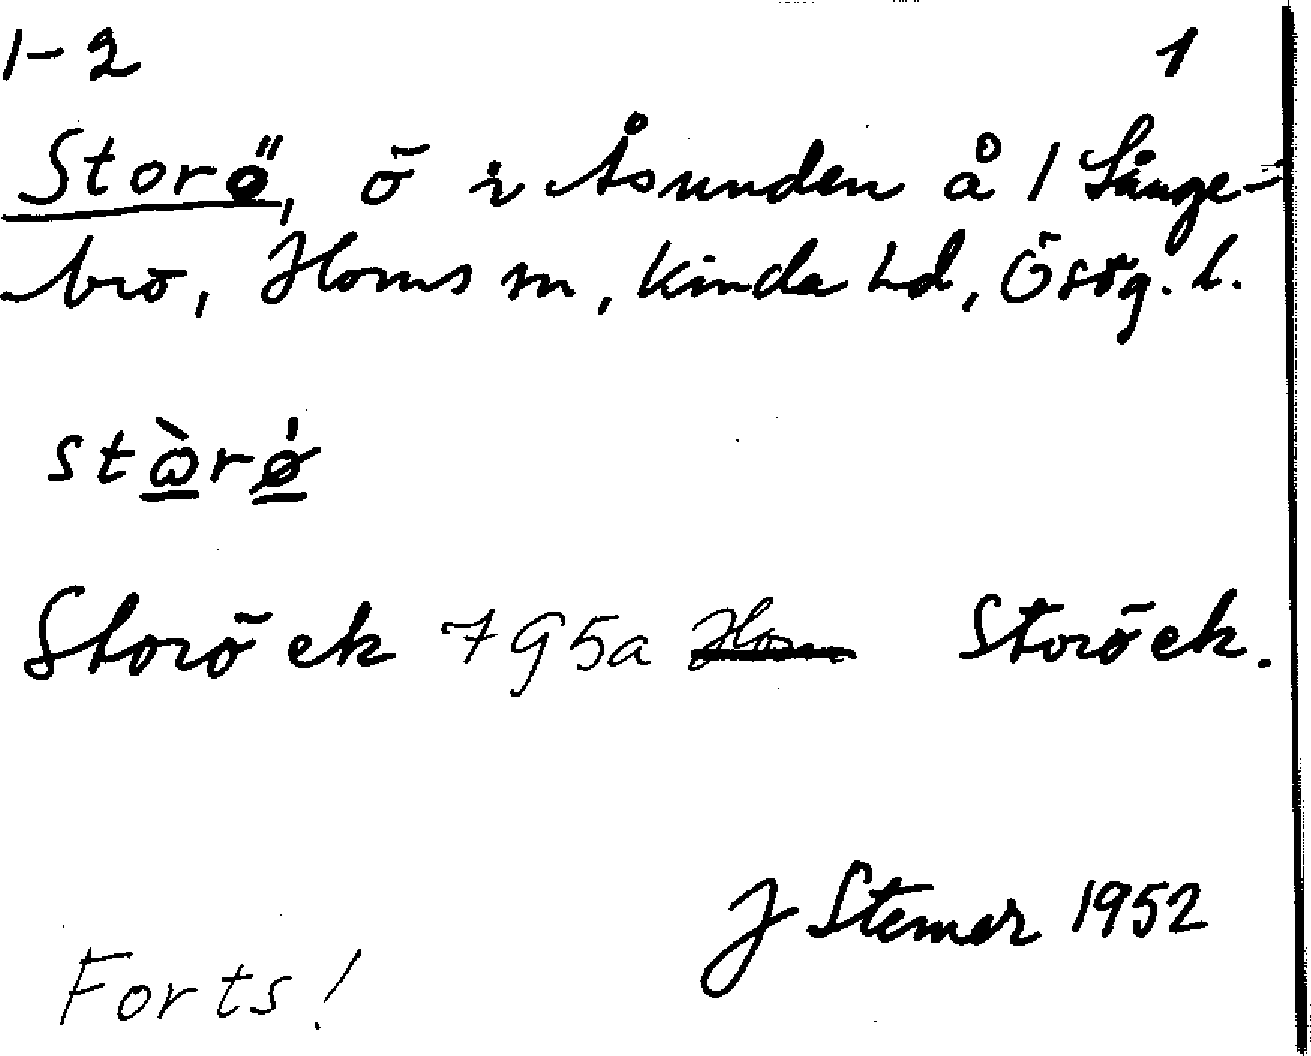 1-2 1
Storö, ö i Åsunden å 1 Långe-
bro, Horns sn, Kinda hd, Östg. l.
stὼrǿ
Storö ek 795a Horn Storö ek.
J Stemar 1952
Forts!